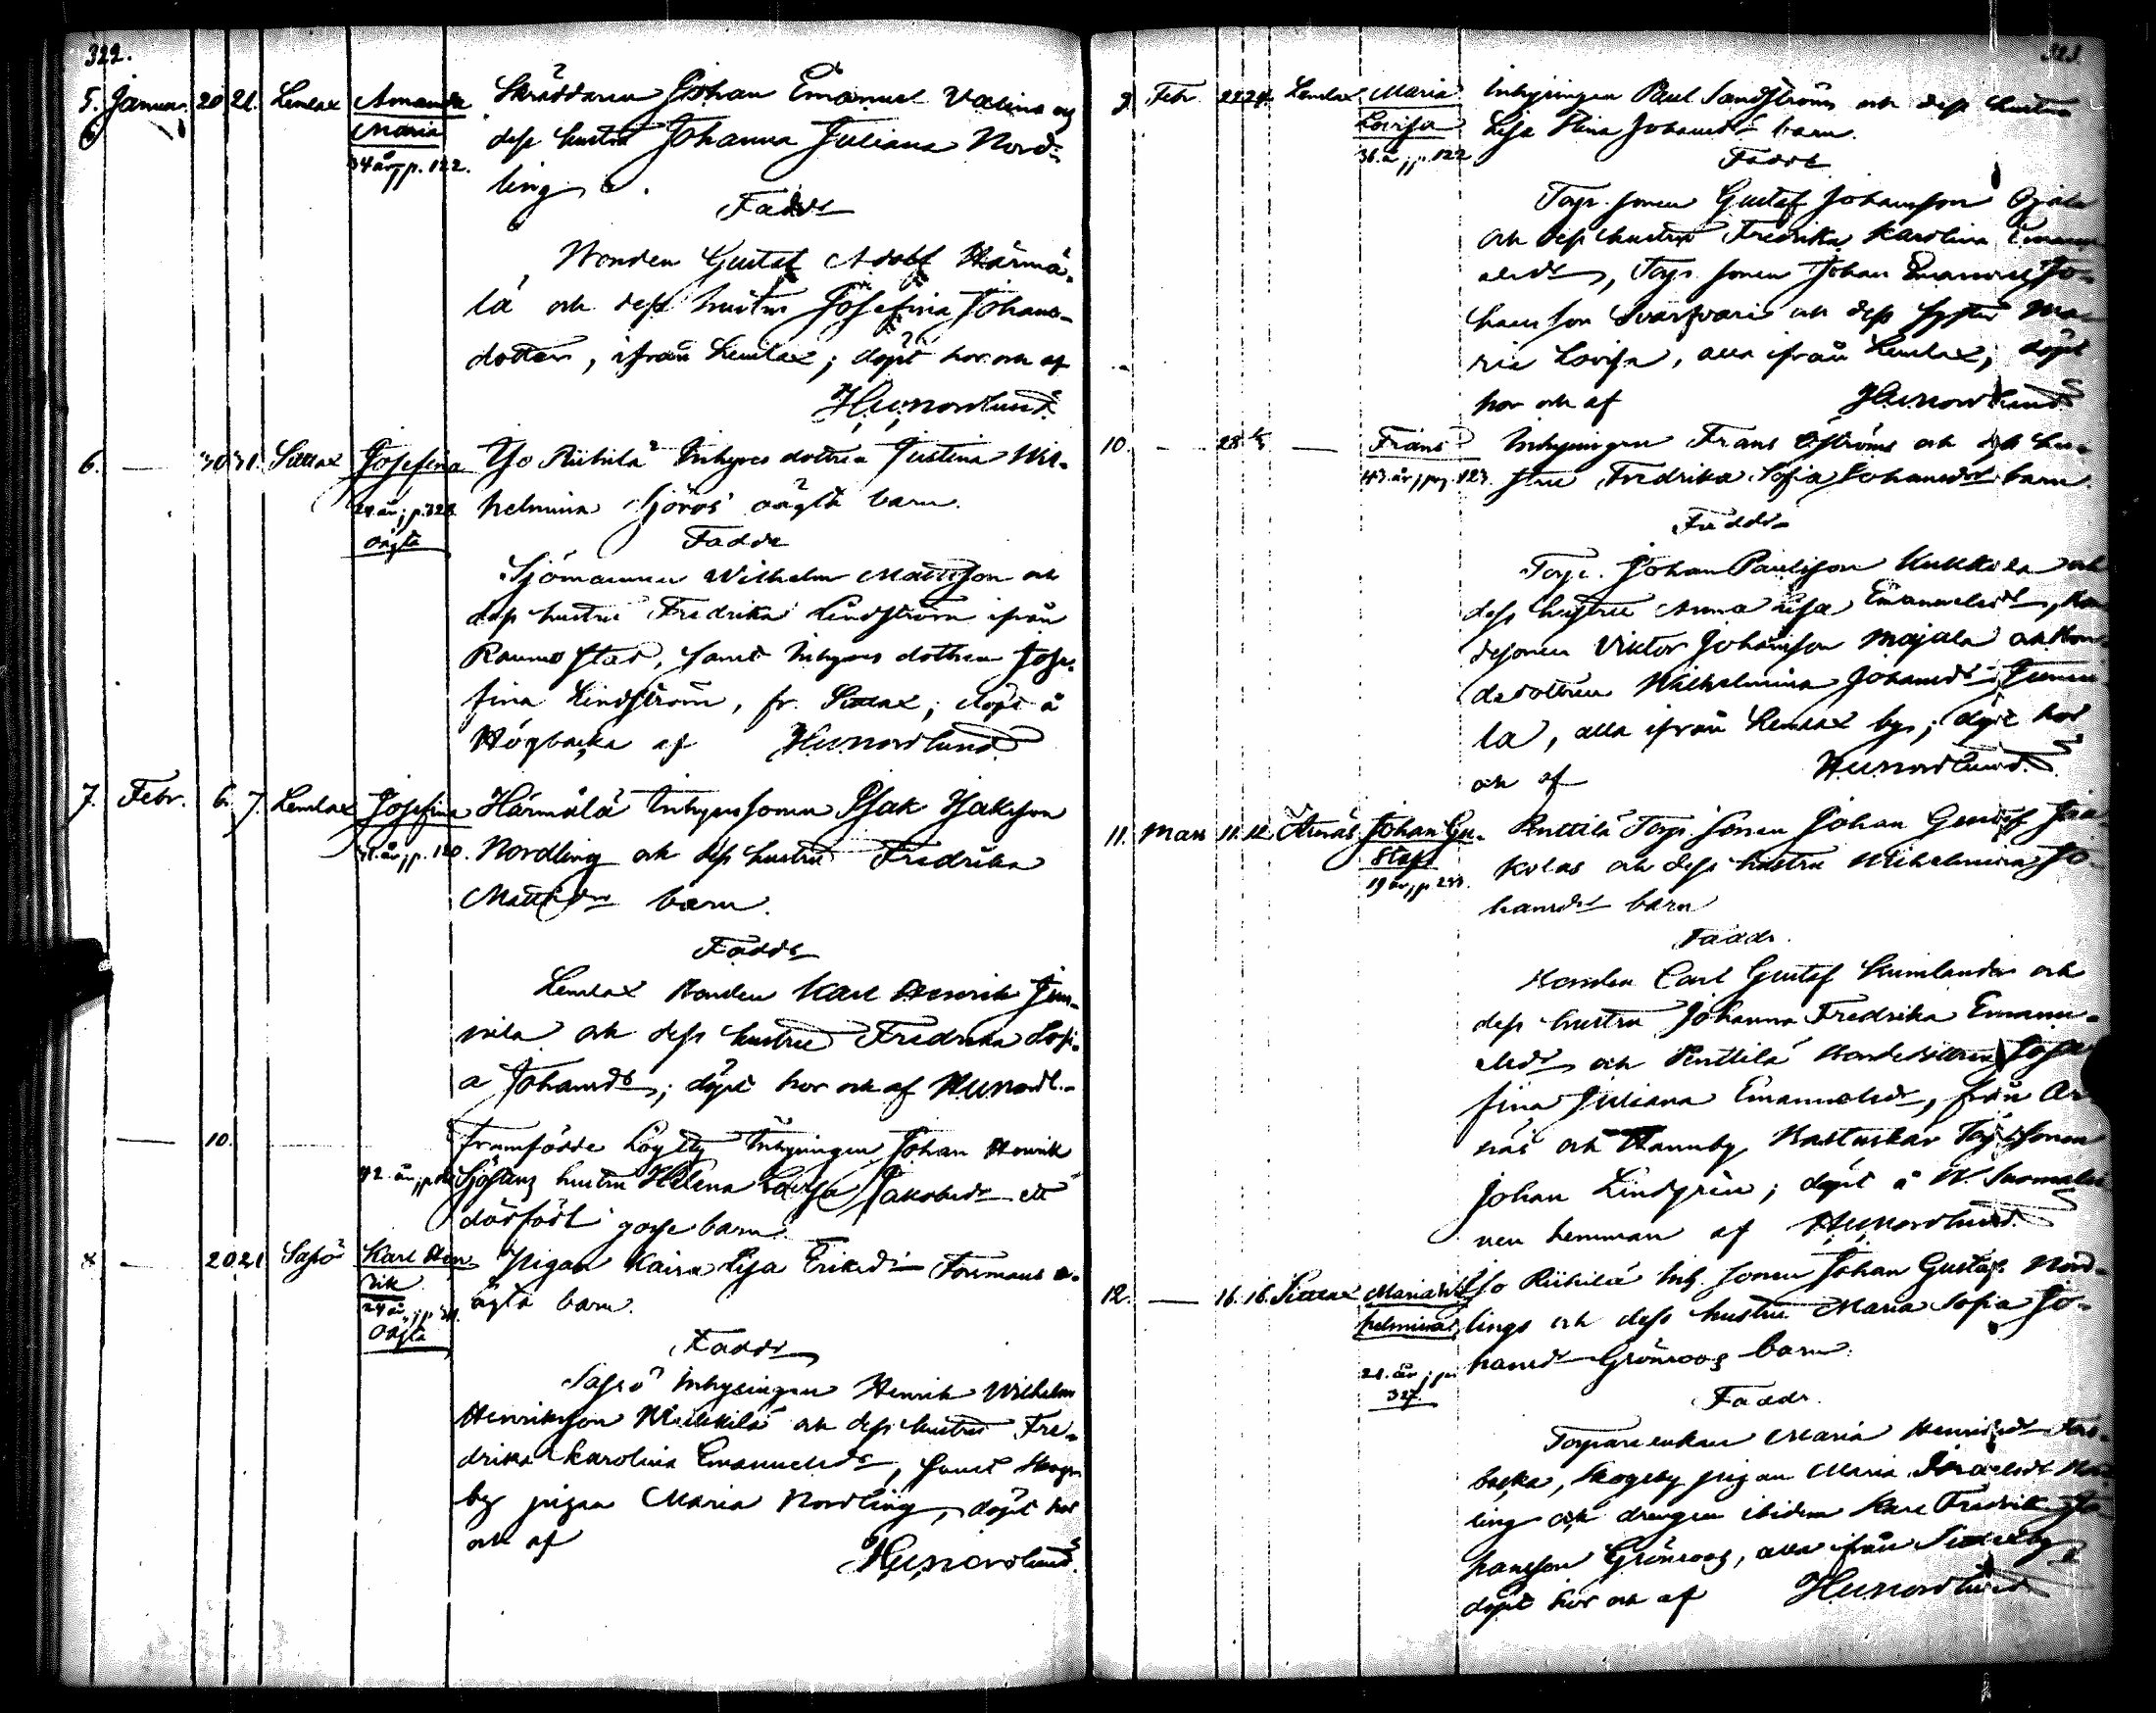 322.
5. Januar. 20 21. Lemlax Amanda Skräddaren Johan Emanuel Valins och
Maria dess hustru Johanna Juliana Nord-
34 år, p. 122. ling
Faddr
Bonden Gustaf Adolf Härmä-
lä och dess hustru Josefina Johans-
dotter, ifrån Lemlax; döpt hos och af
HLNordlund.
6. — 30 31. Sittlax Josefina Yso Riihilä Inhyses dottren Justina Wil-
p. 328 helmina Sjöros' oägta barn.
oägta Faddr
Sjömannen Wilhelm Mattsson och
dess hustru Fredrika Lindström ifrån
Raumo stad, samt Inhyses dottren Jose-
fina Lindström, fr. Sittlax; döpt å
Högbacka af HLNordlund
7. Febr. 6. 7. Lemlax Josefina Härmälä Inhyses sonen Isak Isaksson
år, p. 120. Nordling och dess hustru Fredrika
Mattsdr barn.
Faddr
Lemlax Bonden Karl Henrik Jun-
nila och dess hustru Fredrika Sofi-
a Johansdr; döpt hos och af HLNordl.
— 10. framfödde Löytty Inhysingen Johan Henrik
42 år, Sjöstens hustru Helena Lovisa Jakobsdr ett
dödfödt gosse barn.
8 — 20 21 Sapsö Karl Hen- Pigan Kaisa Lisa Eriksdr Forsmans o-
rik ägta barn.
24 år, p.
Oägta
Faddr
Sapsö Inhysingen Henrik Wilhelm
Henriksson Mikkilä och dess hustru Fre-
drika Karolina Emanuelsdr, samt Skogs-
by pigan Maria Nordling, döpt hos
och af HLNordlund.
323.
9. Febr. 22 24 Lemlax Maria Inhysingen Paul Sandströms och dess hustru
Lovisa Lisa Stina Johansdr barn.
36 år, p. 122 Faddr
Torp. sonen Gustaf Johansson Ojala
och dess hustru Fredrika Karolina Emanu-
elsdr, Torp. sonen Johan Emanuel Jo-
hansson Svarfvari och dess syster Ma-
ria Lovisa, alla ifrån Lemlax, döpt
hos och af HLNordlund
10. — 28 — Frans Inhysingen Frans Öströms och dess hu-
43 år, pag. 123. stru Fredrika Sofia Johansdr barn.
Faddr
Torp. Johan Paulsson Kukkola och
dess hustru Anna Lisa Emanuelsdr, Bon-
desonen Viktor Johansson Majala och Bon-
dedottren Wilhelmina Johansdr Junni-
la, alla ifrån Lemlax by; döpt hos
och af HLNordlund.
11. Mars 11. 12. Årnäs Johan Gu- Penttilä Torp. sonen Johan Gustaf Jaa-
staf kolas och dess hustru Wilhelmina Jo-
19 år, p. hansdr barn
Faddr.
Bonden Carl Gustaf Kumlander och
dess hustru Johanna Fredrika Emanu-
elsdr och Penttilä Bondedottren Jose-
fina Juliana Emanuelsdr, från År-
näs och Hannby Torpsonen
Johan Lindgren; döpt å W. Suomalai-
nen hemman af HLNordlund.
12. — 16. 16. Sittlax Maria Wil- Yso Riihilä Inh. sonen Johan Gustaf Nord-
helmina lings och dess hustru Maria Sofia Jo-
21. år; pag hansdr Grönroos barn.
327. Faddr.
Torpare enkan Maria Henriksdr
backa, Skogsby pigan Maria Israelsdr Nord-
ling och drengen ibidem Karl Fredrik Jo-
hansson Grönroos, alla ifrån Sittlax by
döpt hos och af HLNordlund